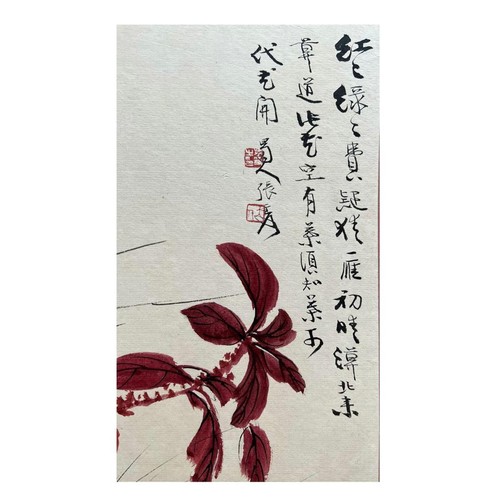 紅〻綠〻費疑猜雁初時北來
莫道此花空有葉須知葉可
代花開 蜀人張爰